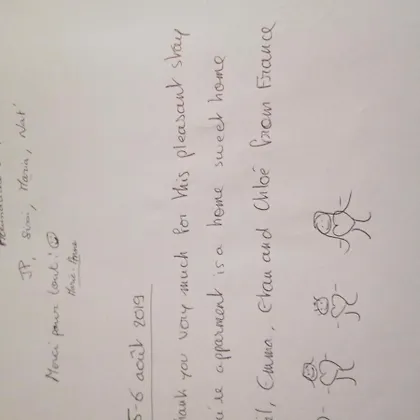 JP, Simi, Marin, Nat'
Merci pour tout!
Marie-Anne
5-6 août 2019
ank you very much for this pleasant stay
're apparment is a home sweet home
il, Emma, Etan and Chloé from France